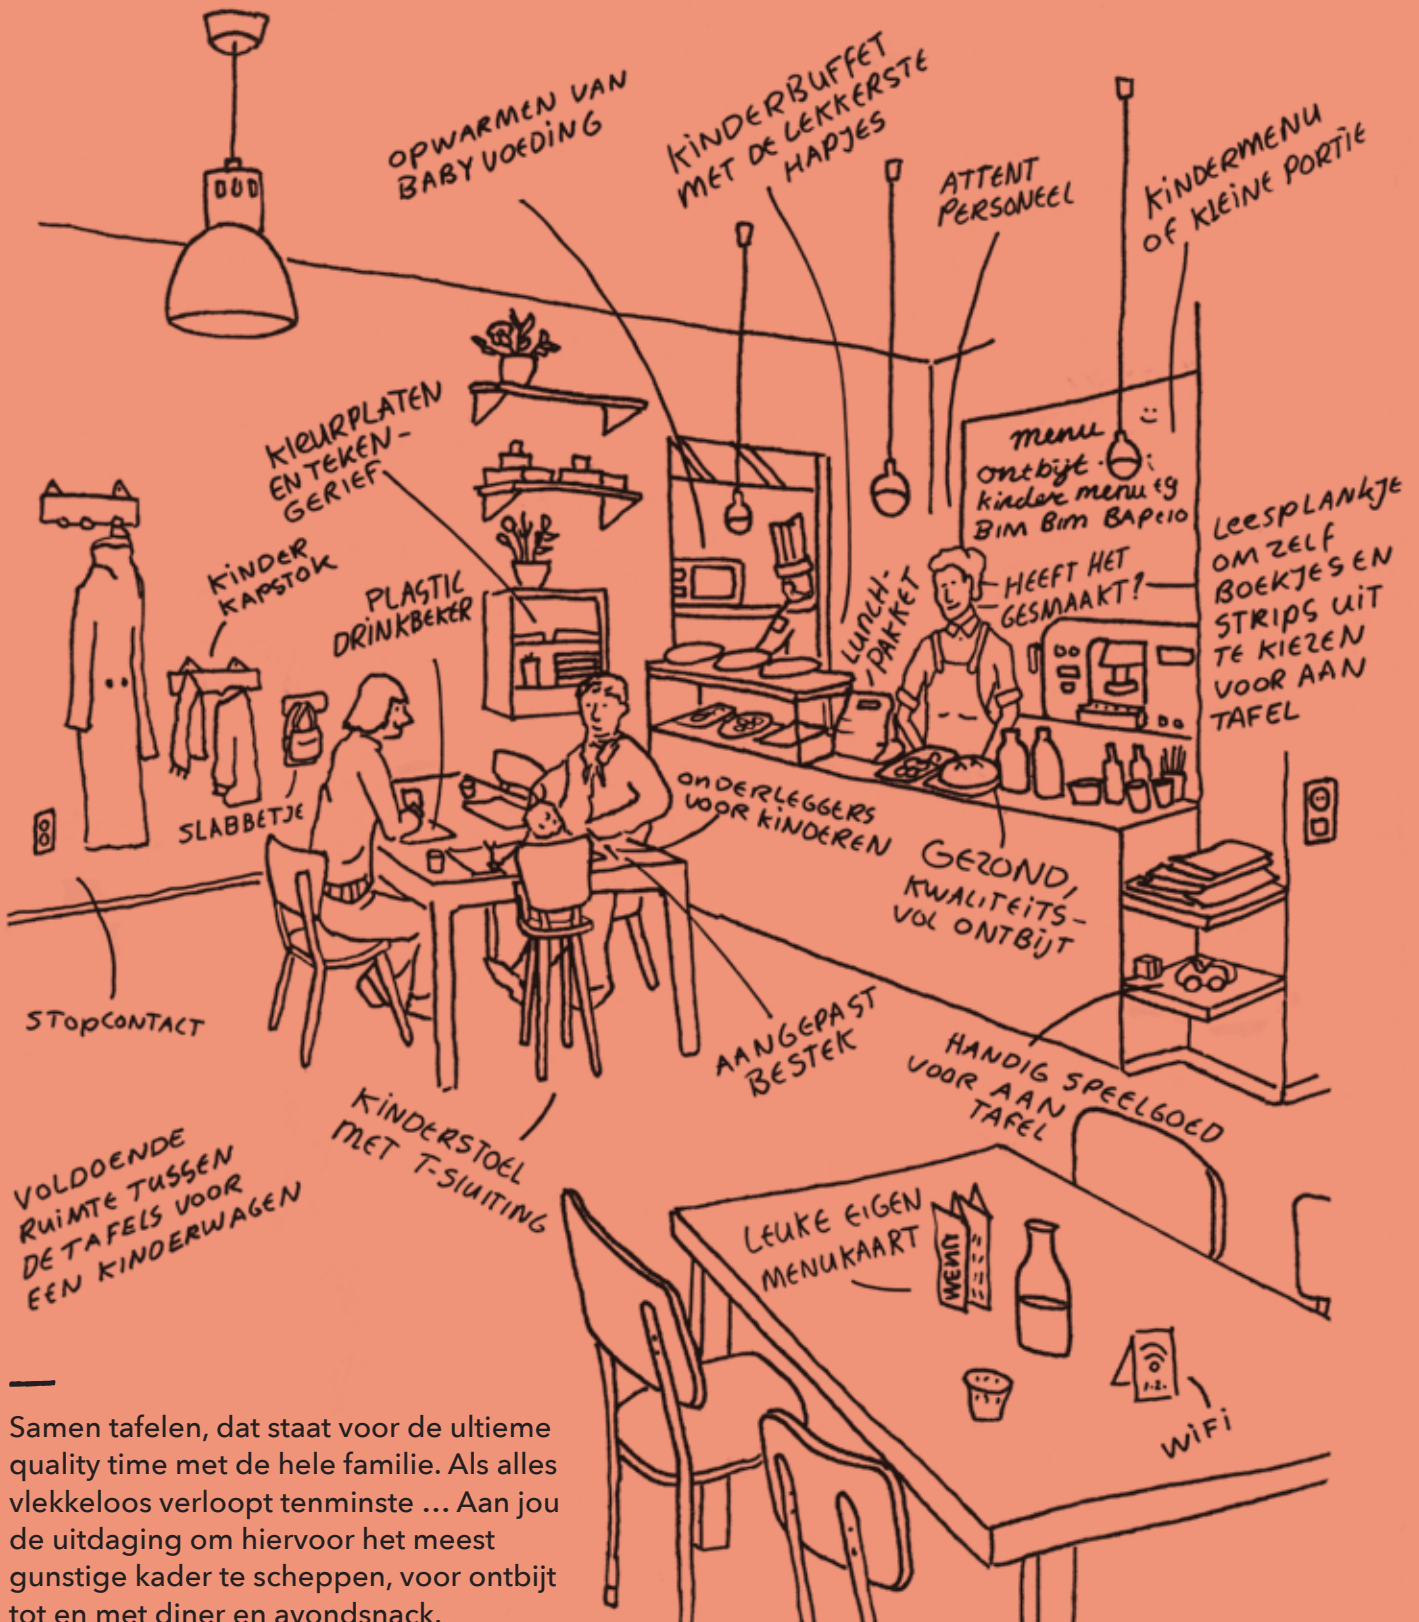 OPWARMEN VAN
BABYVOEDING
KINDERBUFFET
MET DE LEKKERSTE
HAPJES
ATTENT
PERSONEEL
KINDERMENU
OF KLEINE PORTIE
KLEURPLATEN
EN TEKEN-
GERIEF
KINDER
KAPSTOK
PLASTIC
DRINKBEKER
menu
ontbijt
kinder menu €9
BIM BIM BAP €10
LUNCH-
PAKKET
HEEFT HET
GESMAAKT?
LEESPLANKJE
OM ZELF
BOEKJES EN
STRIPS UIT
TE KIEZEN
VOOR AAN
TAFEL
SLABBETJE
ONDERLEGGERS
VOOR KINDEREN
GEZOND,
KWALITEITS-
VOL ONTBIJT
STOPCONTACT
AANGEPAST
BESTEK
HANDIG SPEELGOED
VOOR AAN
TAFEL
KINDERSTOEL
MET T-SLUITING
VOLDOENDE
RUIMTE TUSSEN
DE TAFELS VOOR
EEN KINDERWAGEN
LEUKE EIGEN
MENUKAART
MENU
WIFI
Samen tafelen, dat staat voor de ultieme
quality time met de hele familie. Als alles
vlekkeloos verloopt tenminste … Aan jou
de uitdaging om hiervoor het meest
gunstige kader te scheppen, voor ontbijt
tot en met diner en avondsnack.